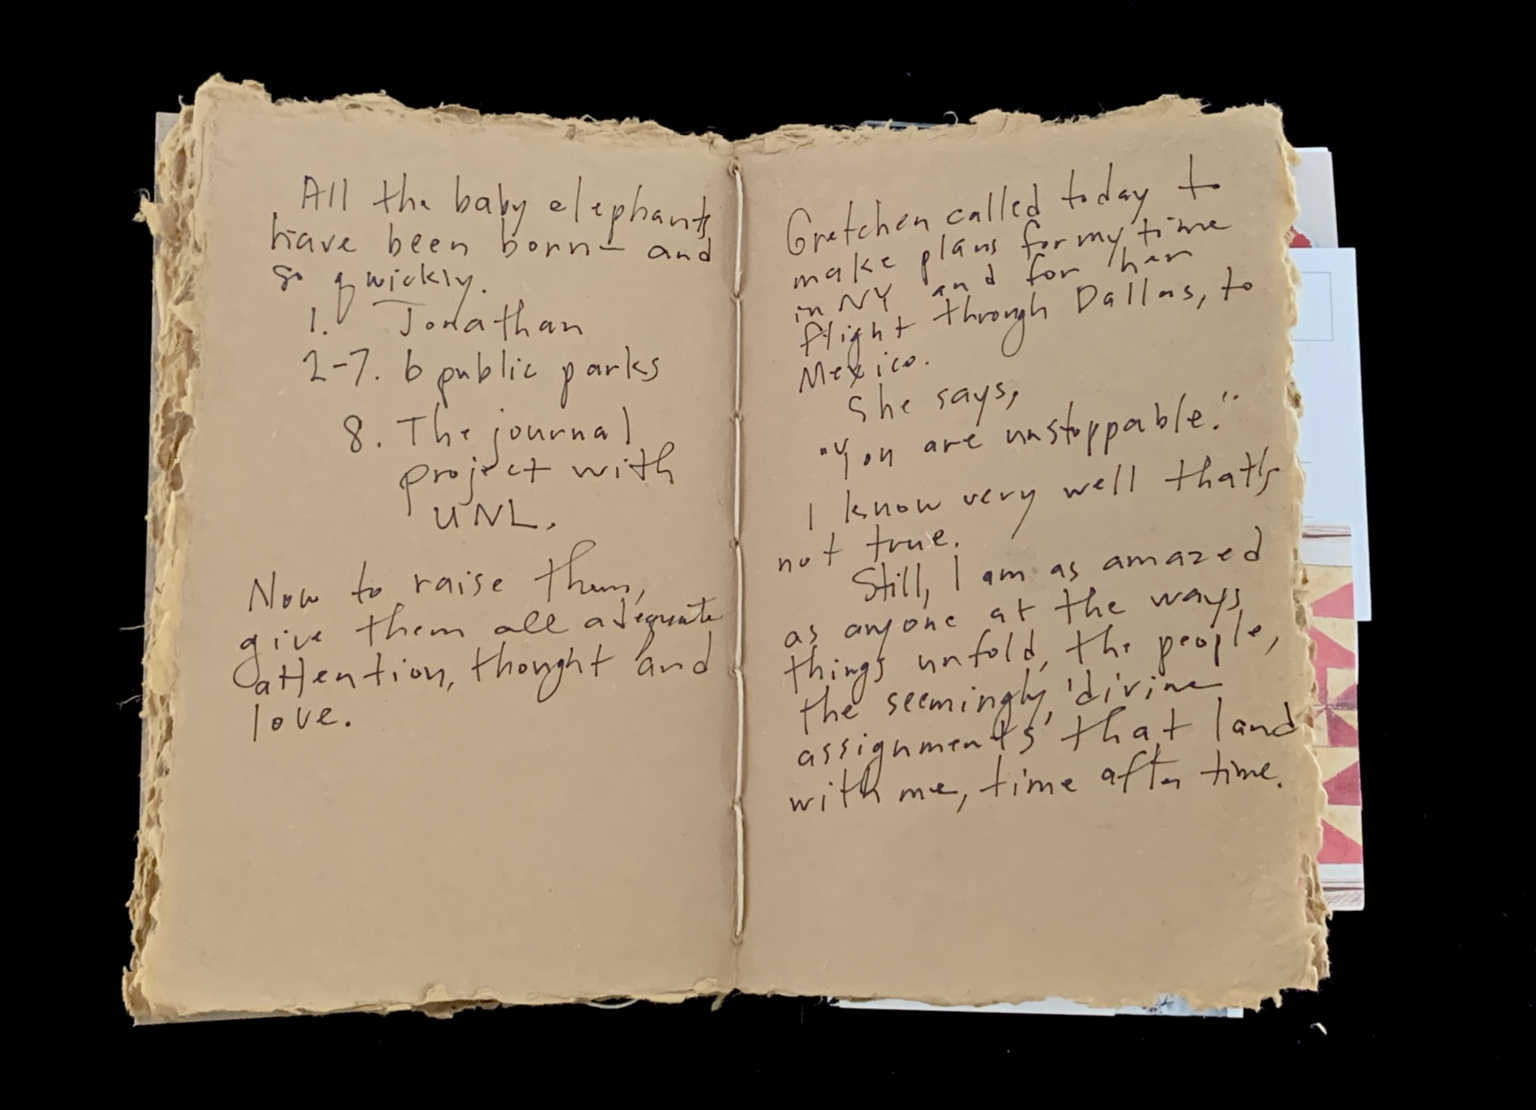 All the baby elephants
have been born – and
so quickly.
1. Jonathan
2-7. 6 public parks
8. The journal
project with
UNL.
Now to raise them,
give them all adequate
attention, thought and
love.
Gretchen called today to
make plans for my time
in NY and for her
flight through Dallas, to
Mexico.
She says,
"You are unstoppable."
I know very well that's
not true.
Still, I am as amazed
as anyone at the ways
things unfold, the people,
the seemingly 'divine
assignments' that land
with me, time after time.